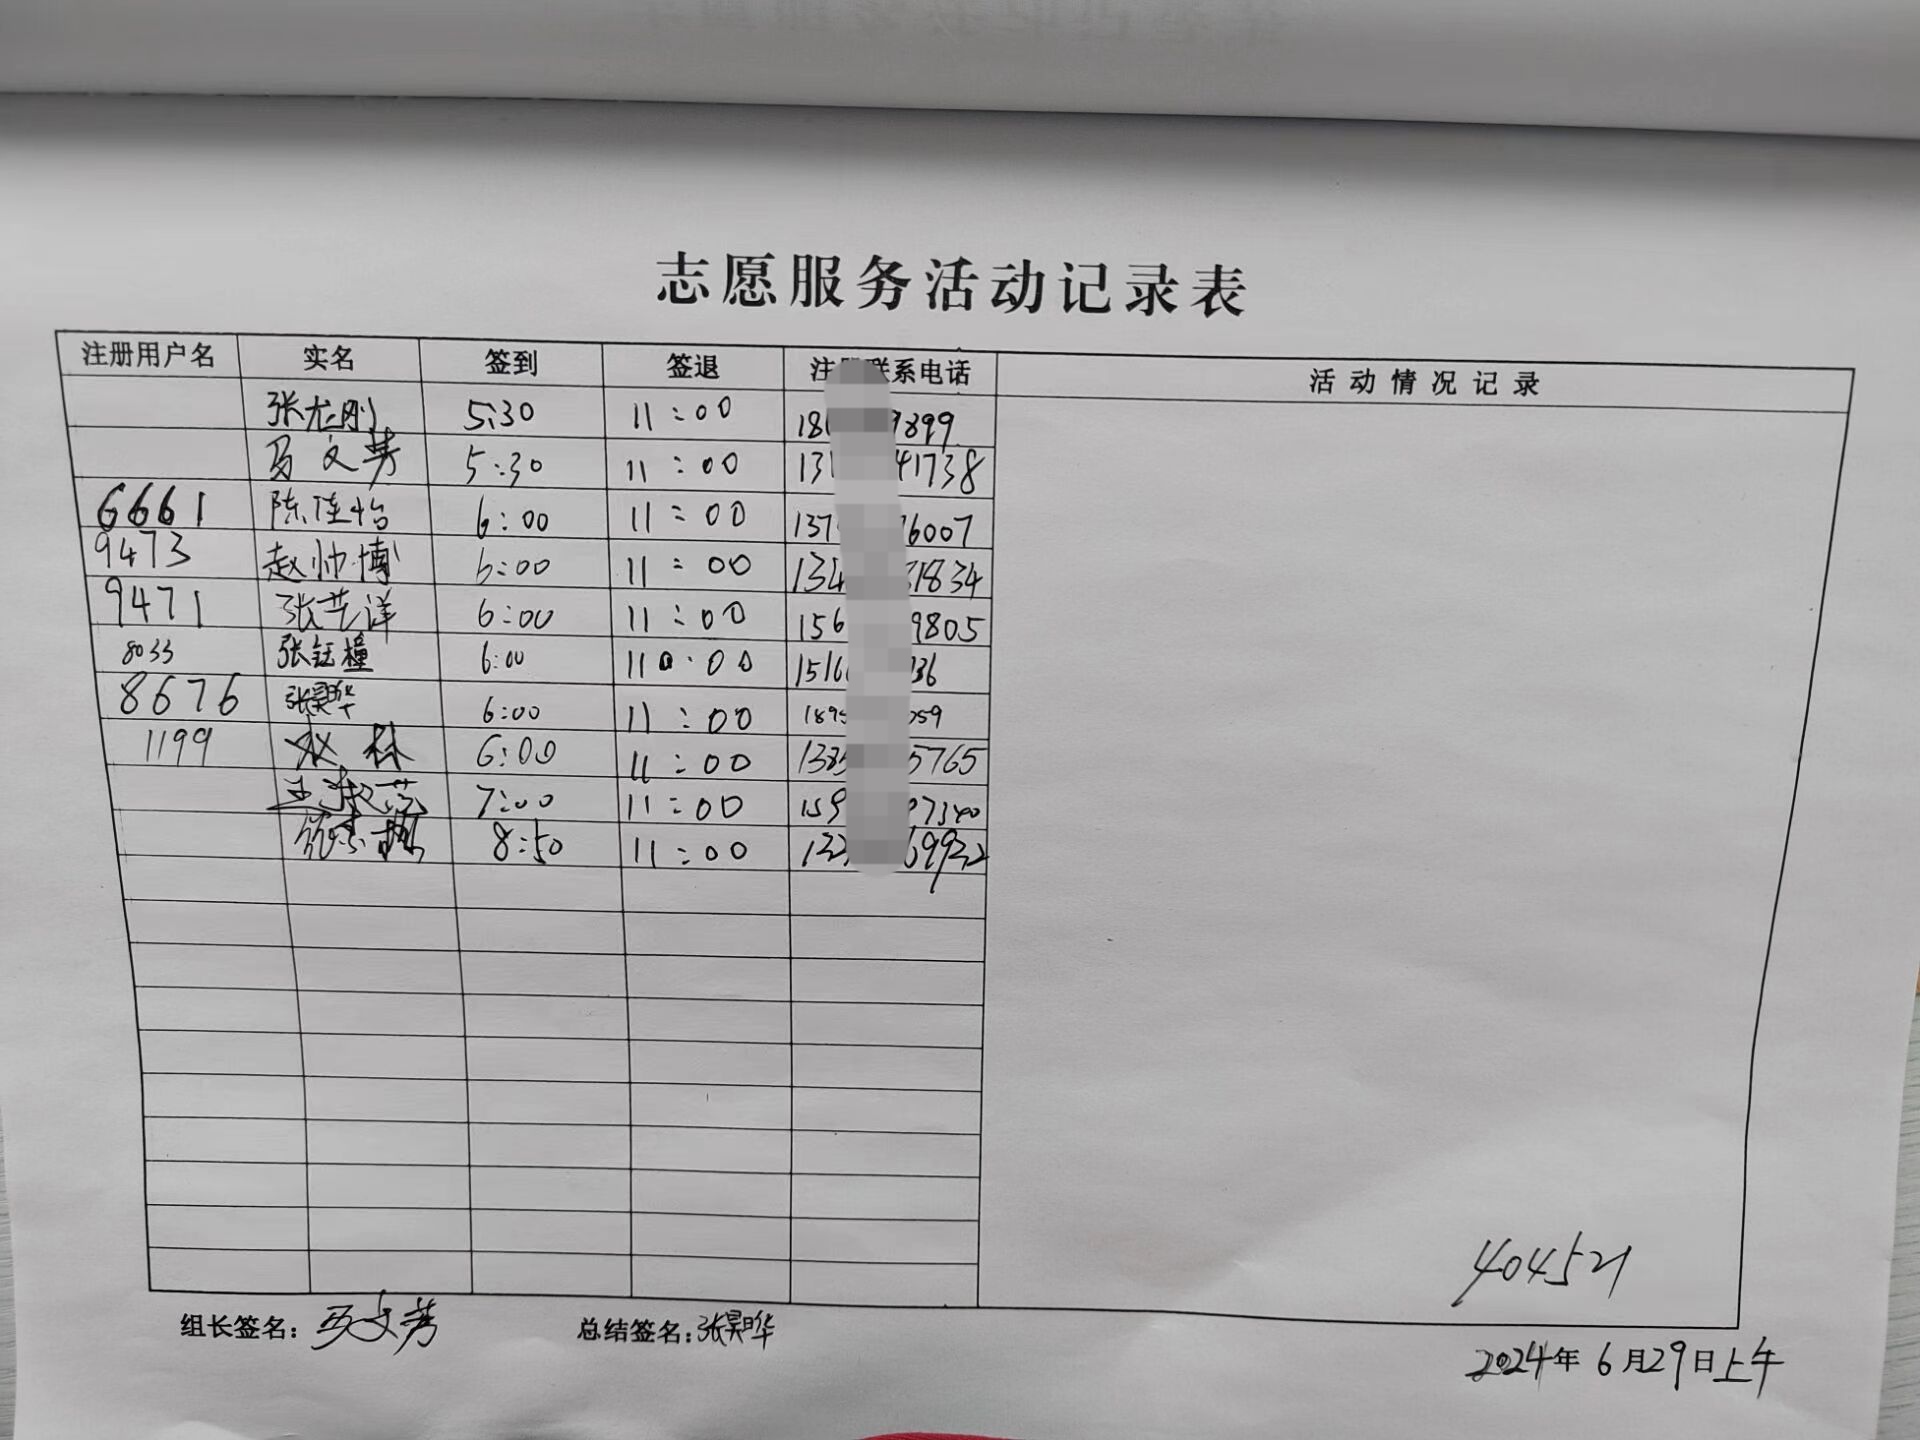 志愿服务活动记录表
注册用户名 实名 签到 签退 注 联系电话 活动情况记录
张龙刚 5:30 11:00 18 9899
马文芳 5:30 11:00 13 41738
6661 陈佳怡 6:00 11:00 137 6007
9473 赵帅博 6:00 11:00 134 1834
9471 张艺洋 6:00 11:00 156 9805
8033 张钰橦 6:00 11:00 1516 36
8676 张昊晔 6:00 11:00 189 059
1199 林 6:00 11:00 138 5765
王淑 7:00 11:00 159 7340
8:50 11:00 132 69932
404521
组长签名：马文芳 总结签名：张昊晔
2024年6月29日上午